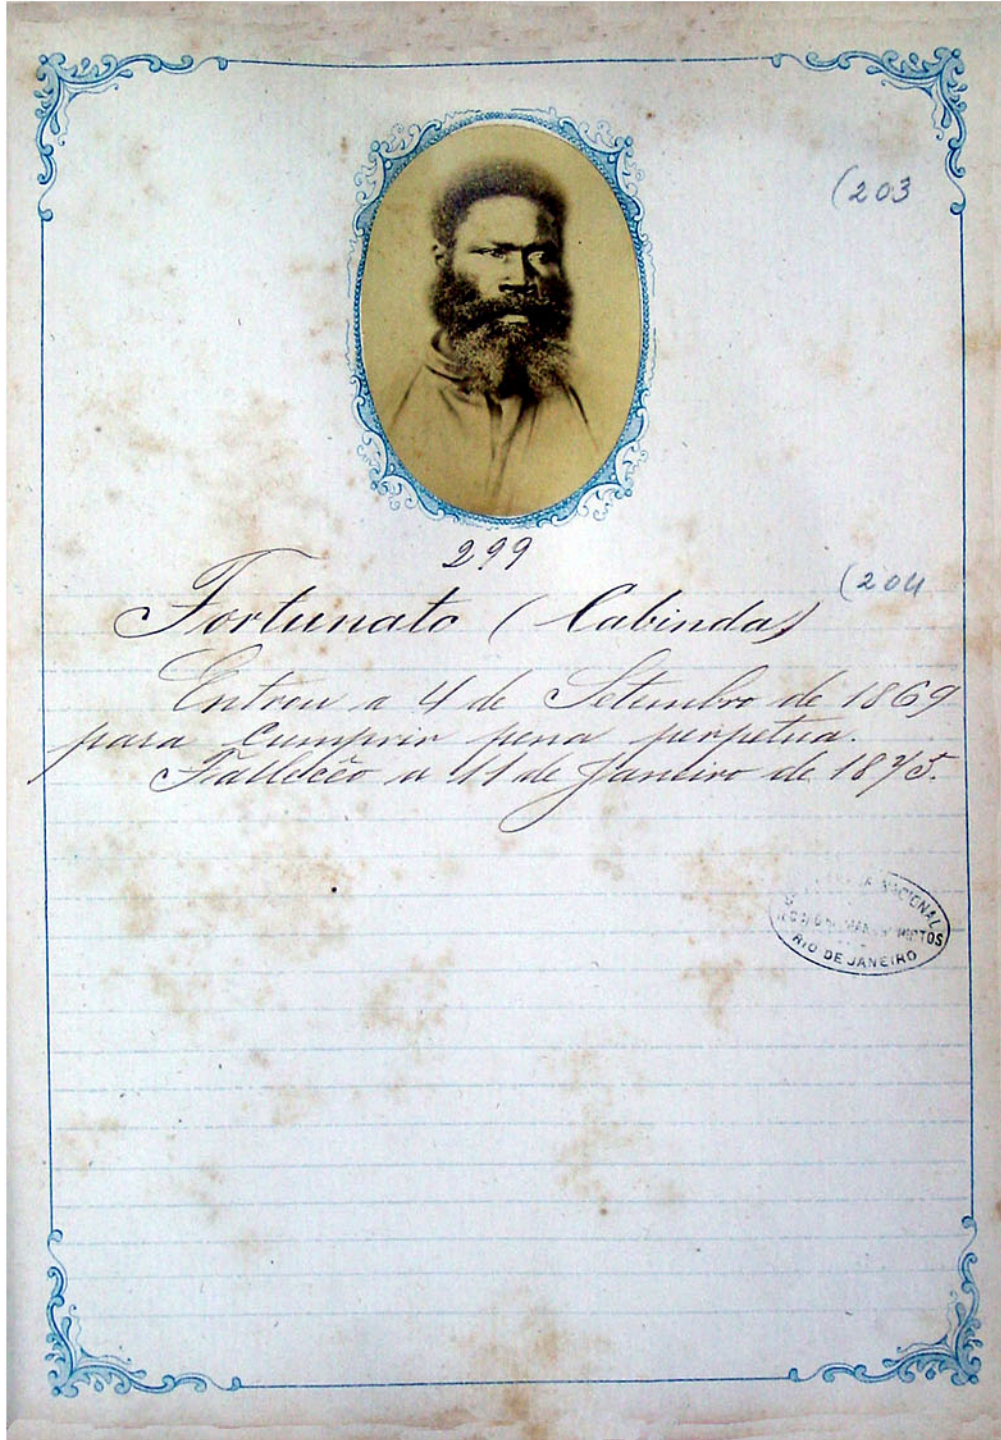 (203
299
(204
Fortunato (Cabinda)
Entrou a 4 de Setembro de 1869
para cumprir pena perpetua.
Fallecêo a 11 de Janeiro de 1875.
NACIONAL
RIO DE JANEIRO